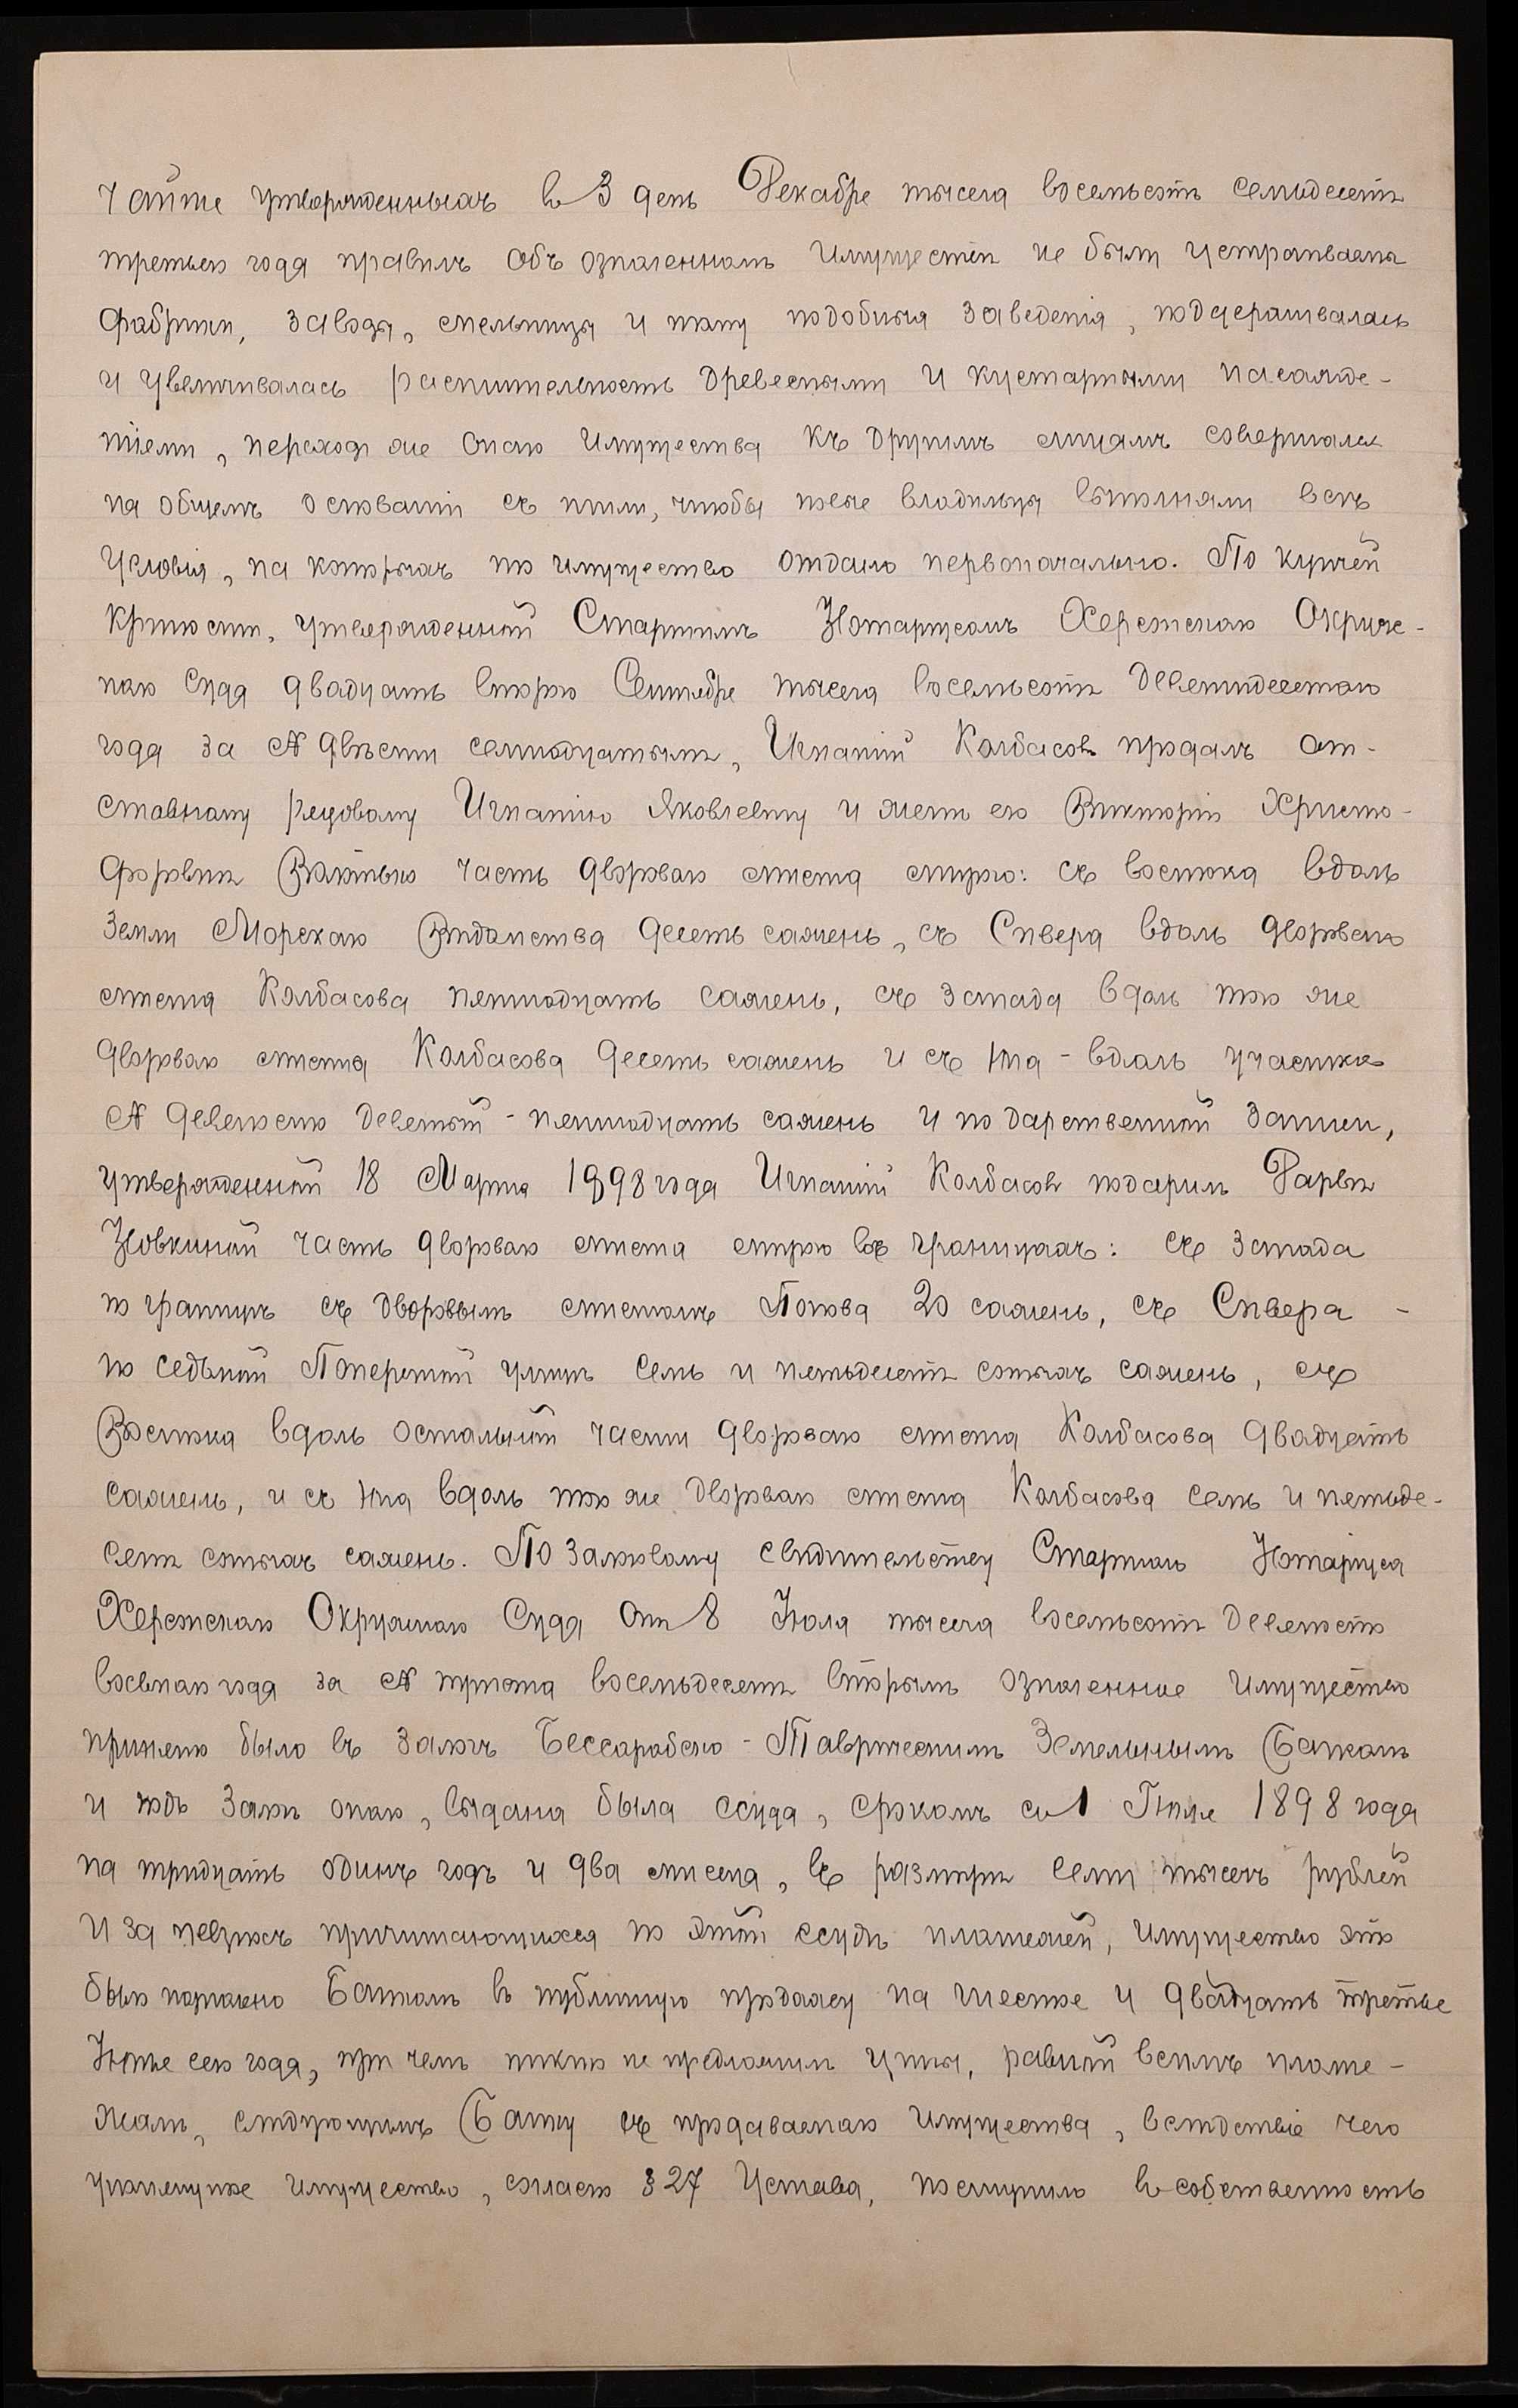 чайше утвержденныхъ въ 3 день Декабря тысяча восемьсотъ семьдесятъ
третьяго года правилъ объ означенномъ имуществѣ не были устраиваемы
фабрики, заводы, мельницы и тому подобныя заведенія, поддерживалась
и увеличивалась растительность древесными и кустарными насажде-
ніями, переходъ же онаго имущества къ другимъ лицамъ совершался
на общемъ основаніи съ тѣмъ, чтобы новые владѣльцы выполняли всѣ
условія, на которыхъ то имущество отдано первоначально. По купчей
крѣпости, утвержденной Старшимъ Нотаріусомъ Херсонскаго Окруж-
наго Суда двадцать второго Сентября тысяча восемьсотъ девяностаго
года за № двѣсти семнадцатымъ, Игнатій Колбасовъ продалъ от-
ставному рядовому Игнатію Яковлевичу и женѣ его Викторіи Христо-
форовнѣ часть двороваго мѣста мѣрою: съ востока вдоль
земли Морскаго Вѣдомства десять сажень, съ Сѣвера вдоль двороваго
мѣста Колбасова пятнадцать сажень, съ запада вдоль того же
двороваго мѣста Колбасова десять сажень и съ юга - вдоль участка
№ девяносто девятый - пятнадцать сажень и по дарственной записи,
утвержденной 18 Марта 1898 года Игнатій Колбасовъ подарилъ Дарьѣ
Новкиной часть двороваго мѣста мѣрою въ границахъ: съ запада
по границѣ съ дворовымъ мѣстомъ Попова 20 сажень, съ Сѣвера -
по седьмой Поперечной улицѣ семь и пятьдесятъ сотыхъ сажень, съ
Востока вдоль остальной части двороваго мѣста Колбасова двадцать
сажень, и съ юга вдоль того же двороваго мѣста Колбасова семь и пятьде-
сятъ сотыхъ сажень. По залоговому свидѣтельству Старшаго Нотаріуса
Херсонскаго Окружнаго Суда отъ 8 Іюля тысяча восемьсотъ девяносто
восьмаго года за № триста восемьдесятъ вторымъ означенное имущество
принято было въ залогъ Бессарабско-Таврическимъ Земельнымъ Банкомъ
и подъ залогъ онаго, выдана была ссуда, срокомъ съ 1 1898 года
на тридцать одинъ годъ и два мѣсяца, въ размѣрѣ семи тысячъ рублей
и за невзносъ причитающихся по этой ссудѣ платежей, имущество это
было назначено Банкомъ въ публичную продажу на шестое и двадцать третье
Іюня сего года, при чемъ никто не предложилъ цѣны, равной всѣмъ плате-
жамъ, слѣдующимъ Банку съ продаваемаго имущества, вслѣдствіе чего
упомянутое имущество, согласно § 27 Устава, поступило въ собственность